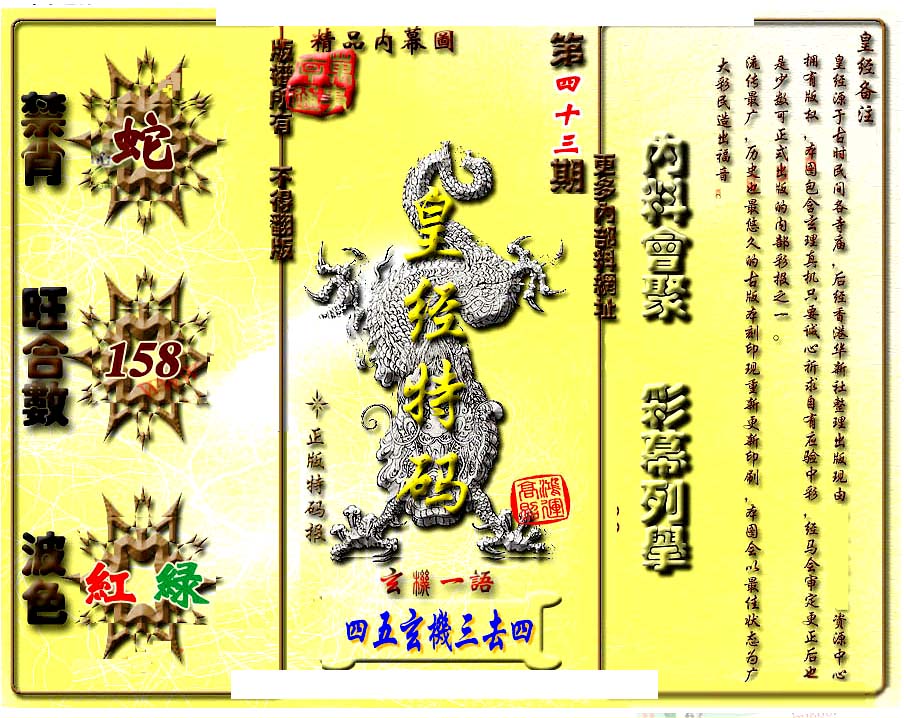 精品内幕圖
第四十三期
版權所有 不得翻版
更多內部料網址
禁肖
蛇
旺合數
158
波色
紅 綠
皇经特码
正版特码报
鴻運高照
玄機一語
四五玄機三去四
內料會聚 彩幕列舉
皇经备注
皇经源于古时民间各寺庙，后经香港华新社整理出版现由 资源中心
拥有版权，本图包含玄理真机只要诚心祈求自有应验中彩，经马会审定更正后也
是少数可正式出版的内部彩报之一。
流传最广，历史也最悠久的古版本刻印现重新更新印刷，本图会以最佳状态为广
大彩民造出福音